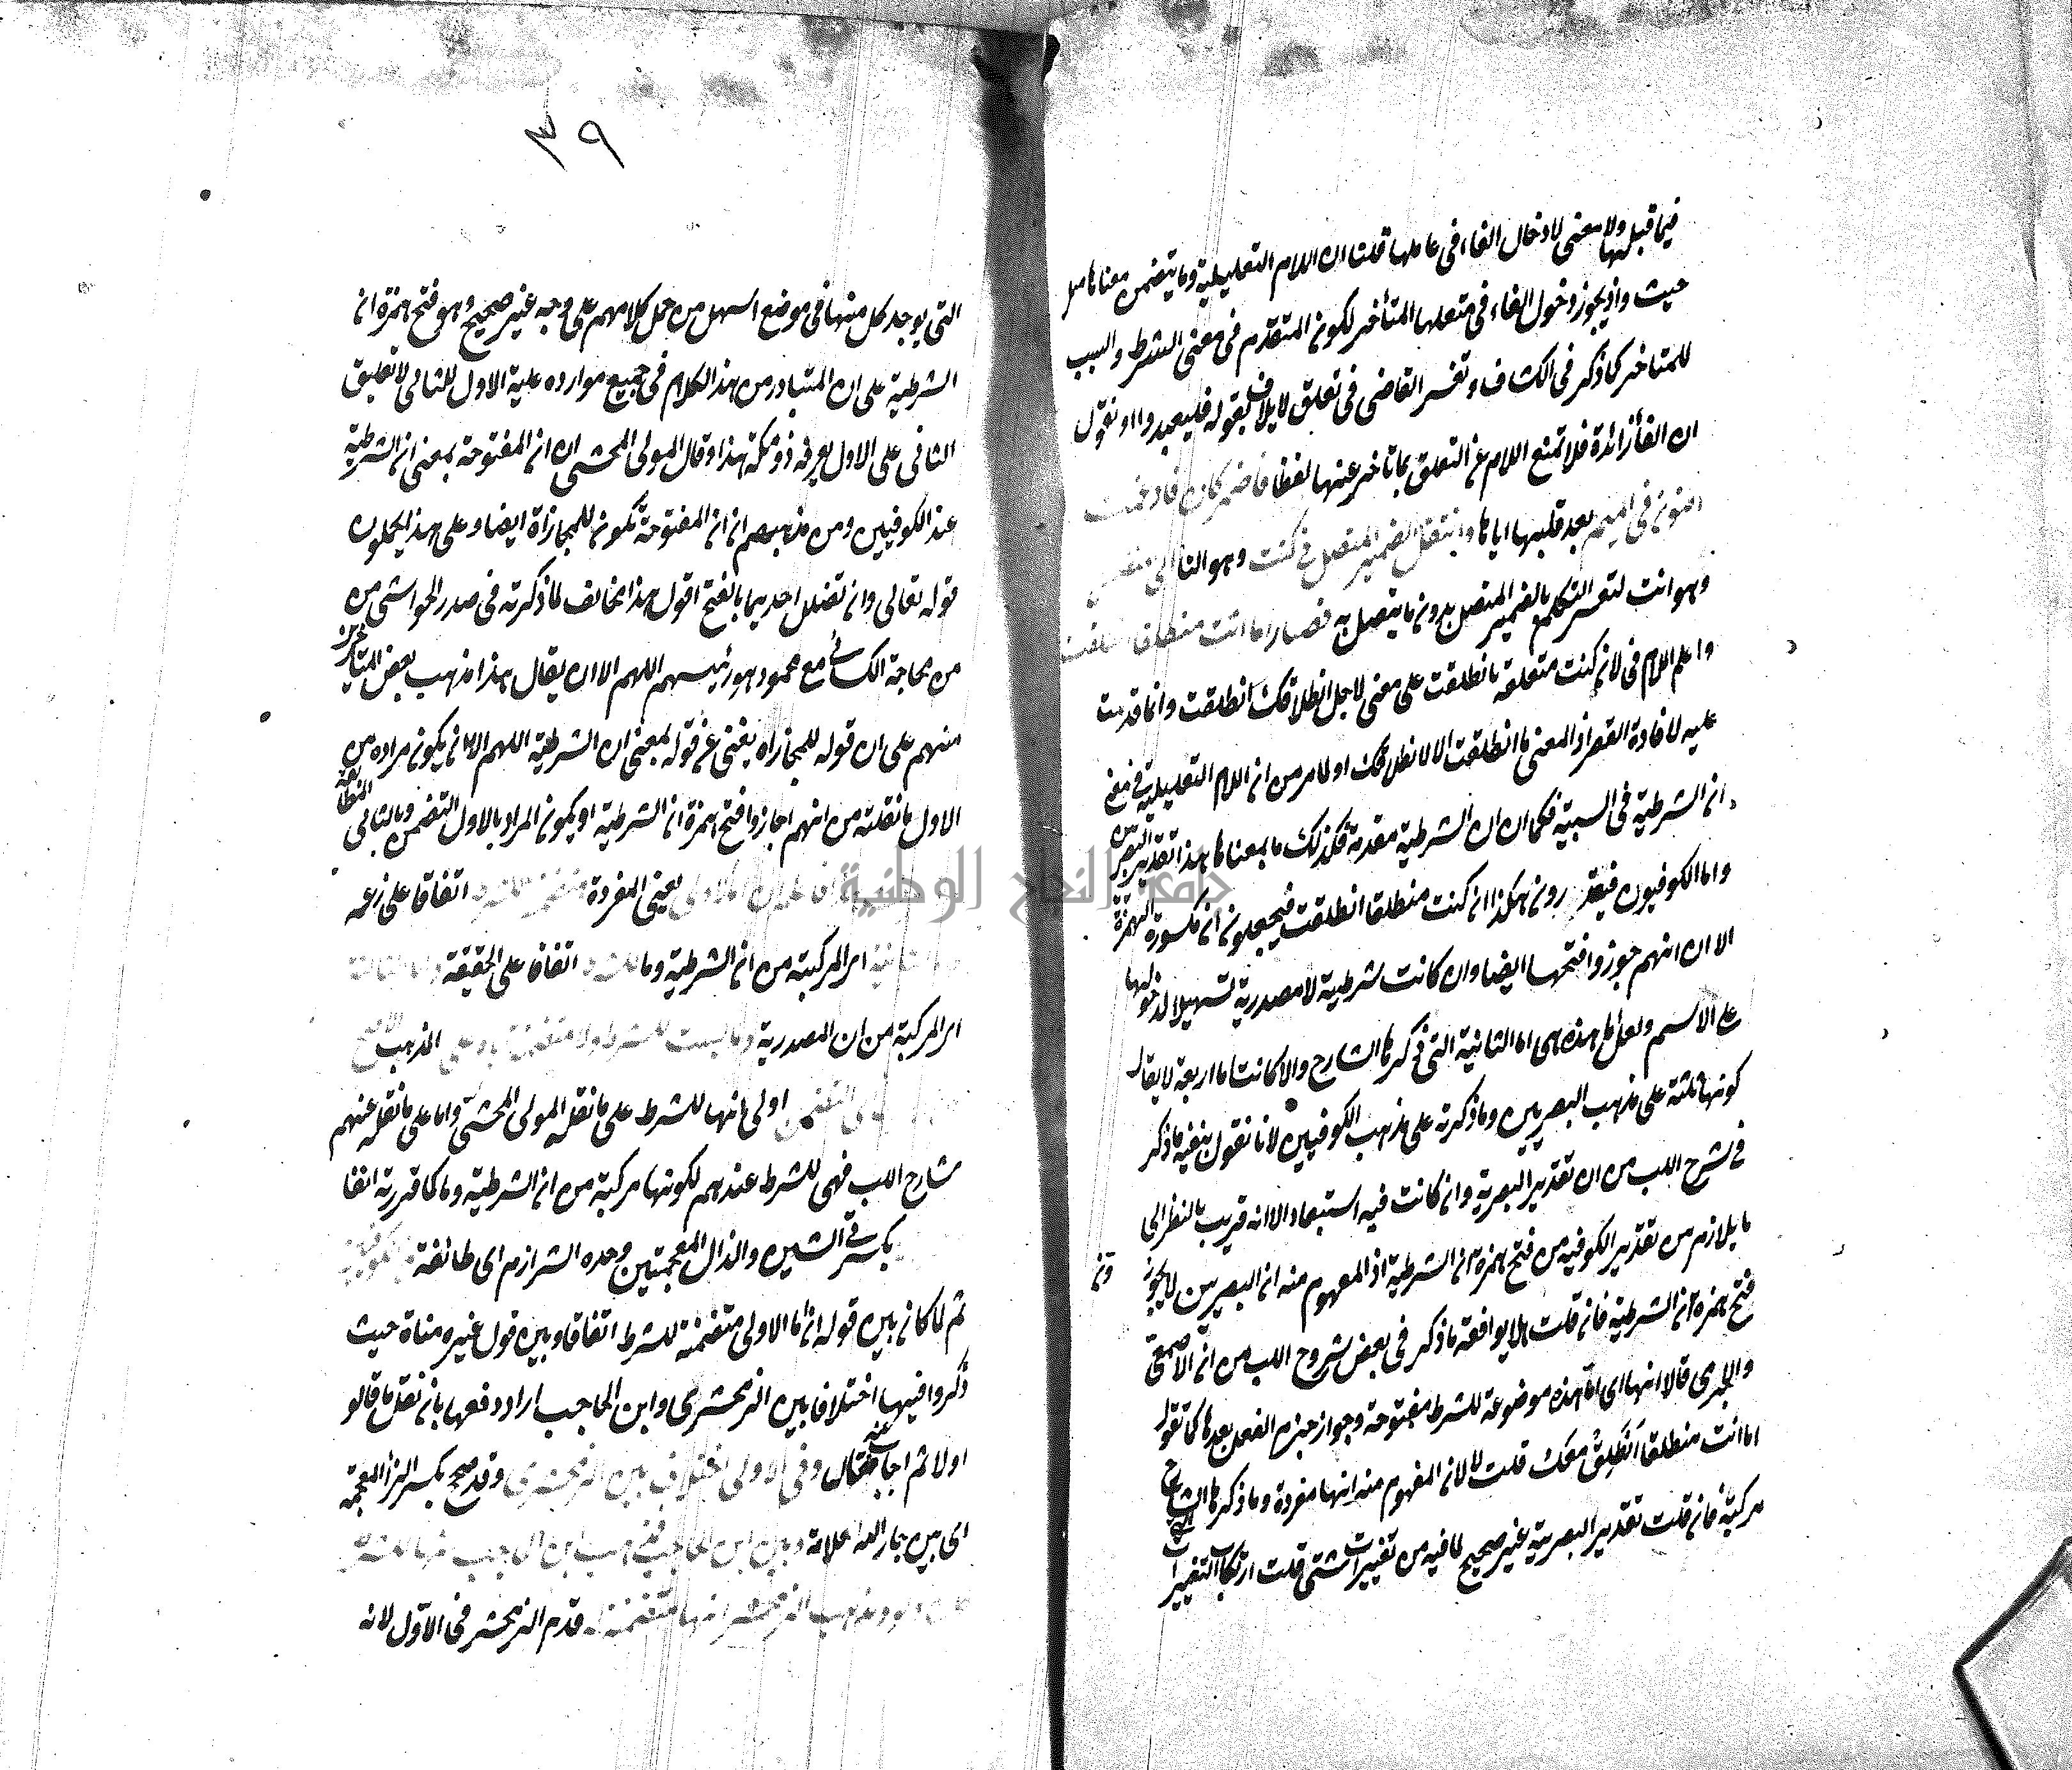 فيما قبلها ولا معنى لادخال الفاء في عاملها قلت ان اللام التعليلية وما يتضمن معناها من
حيث واذ يجوز دخول الفاء في متعلقها المتأخر لكون المتقدم في معنى الشرط والسبب
للمتاخر كما ذكر في الكشاف وتفسير القاضي في تعلق لايلاف بقوله فليعبدوا او نقول
ان الفأ زائدة فلا تمنع اللام عن التعلق بما تأخر عنها لفظا فاضمر كان فادغمت
النون في الميم بعد قلبها اياها وانتقل الضمير المتصل في كنت وهو التا الى منفصل
وهو انت لتعسر التكلم بالضمير المتصل بدون ما يتصل به فصار اما انت منطلقا انطلقت
واعلم اللام في لان كنت متعلقه بانطلقت على معنى لاجل انطلاقك انطلقت وانما قدمت
عليه لافادة القصر اذ المعنى ما انطلقت الا لانطلاقك او لما مر من ان اللام التعليلية في معنى
ان الشرطية في السببية فكما ان ان الشرطية مقدمة فكذلك ما بمعناها هذا تقدير البصريين
واما الكوفيون فيقدرون هكذا ان كنت منطلقا انطلقت فيجعلون ان مكسورة الهمزة
الا ان انهم جوزوا فتحها ايضا وان كانت شرطية لا مصدرية تسهيلا لدخولها
على الاسم ولعل هذه هي اما الثانية التي ذكرها الشارح والا كانت اما اربعة لا يقال
كونها ثلثة على مذهب البصريين وما ذكرته على مذهب الكوفيين لانا نقول ينفيه ما ذكر
في شرح اللب من ان تقدير البصرية وان كانت فيه استبعاد الا انه قريب بالنظر الى
ما يلازم من تقدير الكوفية من فتح همزة ان الشرطية اذ المفهوم منه ان البصريين لا يجوز
فتح همزة ان الشرطية فان قلت هلا يوافقه ما ذكر في بعض شروح اللب من ان الاصمعي
قالا انها اي اما هذه موضوعة للشرط مفتوحة وجواز جزم الفعل بعدها كما تقول
اما انت منطلقا انطلق معك قلت لا لان المفهوم منه انها مفردة وما ذكرها الشارح
مركبة فان قلت تقدير البصرية غير صحيح لما فيه من تغييرات شتى قلت ارتكاب التغييرات
٣٩
التي يوجد كل منها في موضع اسهل من حمل كلامهم على وجه غير صحيح وهو فتح همزة ان
الشرطية على ان المتبادر من هذا الكلام في جميع موارده علية الاول للثاني لا تعليق
الثاني على الاول يعرفه ذو مكة هذا وقال المولى المحشي ان ان المفتوحة بمعنى ان الشرطية
عند الكوفيين ومن مذهبهم ان ان المفتوحة تكون للمجازاة ايضا وعلى هذا يحملون
قوله تعالى وان تضلل احديهما بالفتح اقول هذا مخالف لما ذكرته في صدر الحواشي من
من محاجة الكسائي مع محمود هو رئيسهم اللهم الا ان يقال هذا مذهب بعض المتأخرين
منهم على ان قوله للمجازاه يغني عن قوله بمعنى ان الشرطية اللهم الا ان يكون مراده من
الاول ما نقلته من انهم اجازوا فتح همزة ان الشرطية او يكون المراد بالاول التضمن وبالثاني المطابقة
الاولى يعني المفردة متضمنة للشرط اتفاقا على زعمه
اي المركبة من ان الشرطية وما للشرط اتفاقا على الحقيقة
اي المركبة من ان المصدرية وما ليست للشرط ولا متضمنة المذهب
اولى انها للشرط على ما نقله المولى المحشي واما على ما نقله عنهم
شارح اللب فهي للشرط عندهم لكونها مركبة من ان الشرطية وما كما قررته انفا
بكسر الشين والذال المعجمتين وحده الشرازم اي طائفة
ثم لما كان بين قوله ان اما الاولى متضمنة للشرط اتفاقا وبين قول غيره مناة حيث
ذكروا فيها اختلافا بين الزمخشري وابن الحاجب اراد دفعها بان نقل ما قالو
اولا ثم اجاب عنه فقال وفي الاولى اختلاف بين الزمخشري وقد صح بكسر الزا المعجمة
اي بين جار الله العلامة وبين ابن الحاجب فمذهب ابن الحاجب
ومذهب الزمخشر انها متضمنة قدم الزمخشر في الاول لانه
جامعة النجاح الوطنية